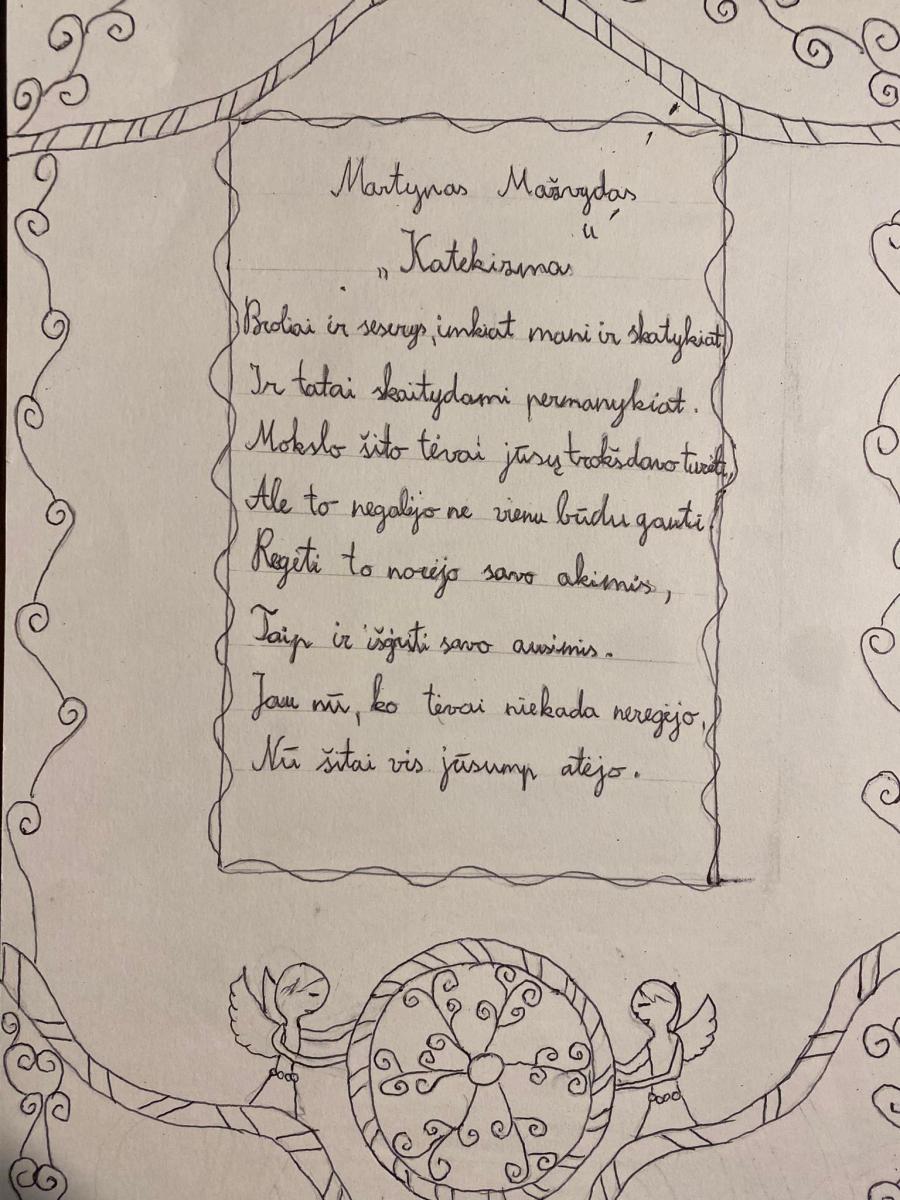 Martynas Mažvydas
„Katekizmas“
Broliai ir seserys, imkiat mani ir skatykiat
Ir tatai skaitydami permanykiat.
Mokslo šito tėvai jūsų trokšdavo turėti,
Ale to negalėjo ne vienu būdu gauti.
Regėti to norėjo savo akimis,
Taip ir išgirti savo ausimis.
Jau nū, ko tėvai niekada neregėjo,
Nū šitai vis jūsump atėjo.